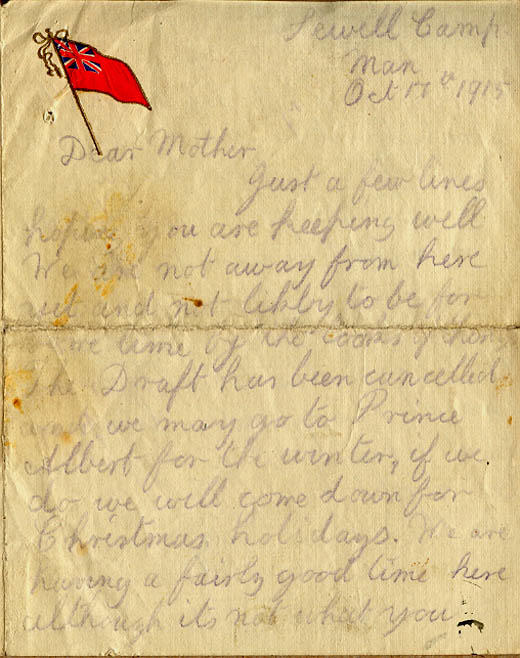 Sewell Camp
Man
Oct 17th 1915
Dear Mother
Just a few lines
hoping you are keeping well
We are not away from here
yet and not likly to be for
some time by the looks of things
The Draft has been cancelled
and we may go to Prince
Albert for the winter, if we
do we will come down for
Christmas holsdays. We are
having a fairly good time here
although its not what you